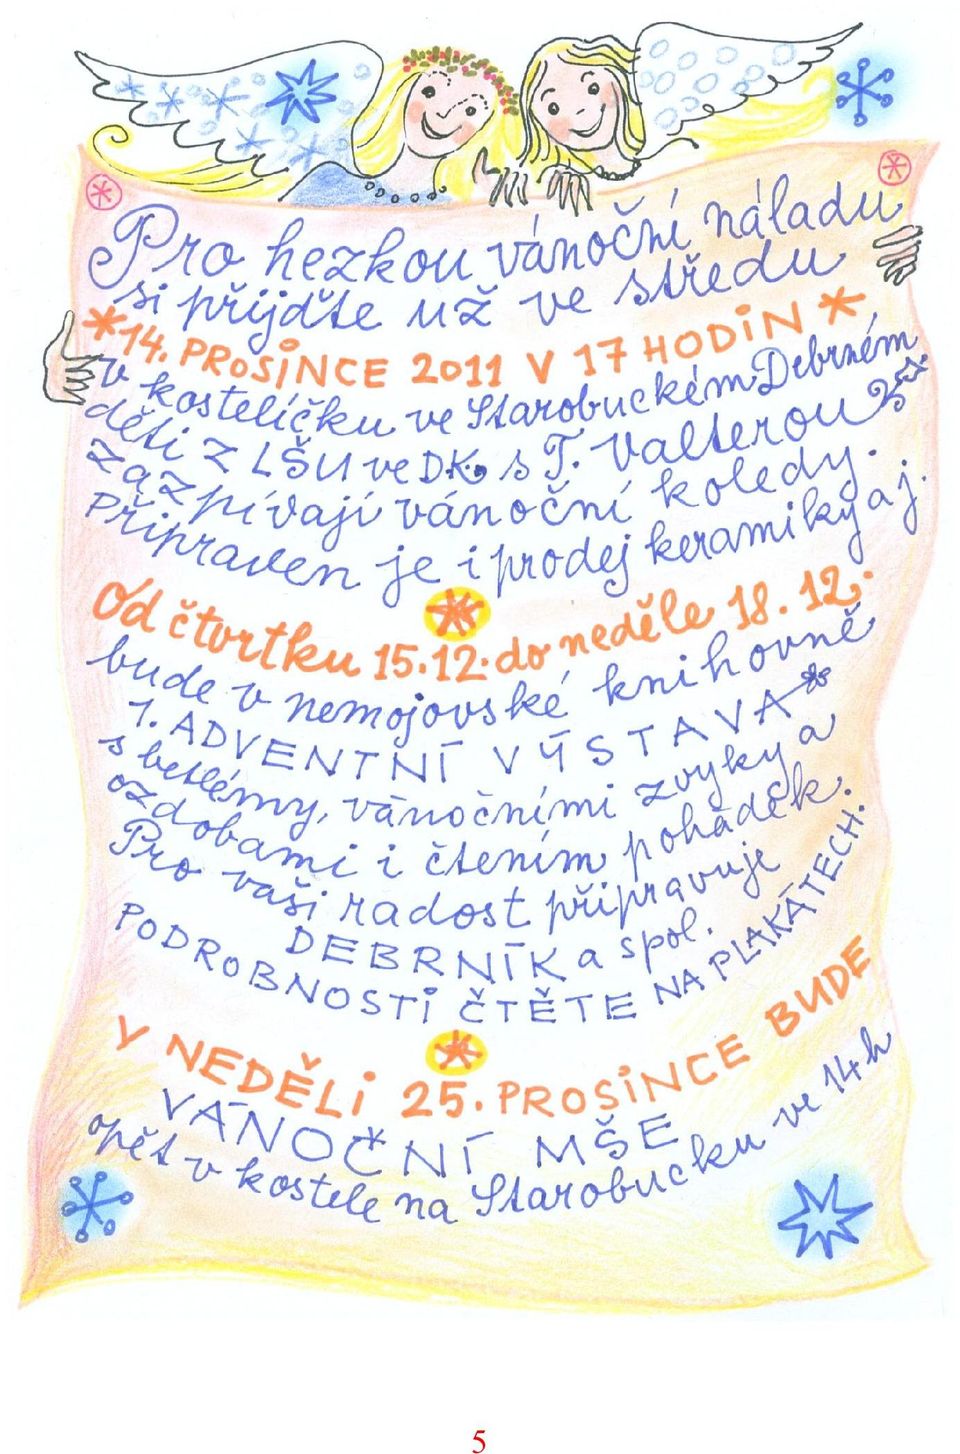 Pro hezkou vánoční náladu
si přijďte už ve středu
14. PROSINCE 2011 V 17 HODIN
v kostelíčku ve Starobuckém Debrném
děti z LŠU ve DK. s T. Valterou
zazpívají vánoční koledy.
Připraven je i prodej keramiky aj.
Od čtvrtku 15.12. do neděle 18.12.
bude v nemojovské knihovně
1. ADVENTNÍ VÝSTAVA
s betlémy, vánočními zvyky a
ozdobami i čtením pohádek.
Pro vaši radost připravuje
DEBRNÍK a spol.
PODROBNOSTI ČTĚTE NA PLAKÁTECH.
V NEDĚLI 25. PROSINCE BUDE
VÁNOČNÍ MŠE
opět v kostele na Starobucku ve 14h
5